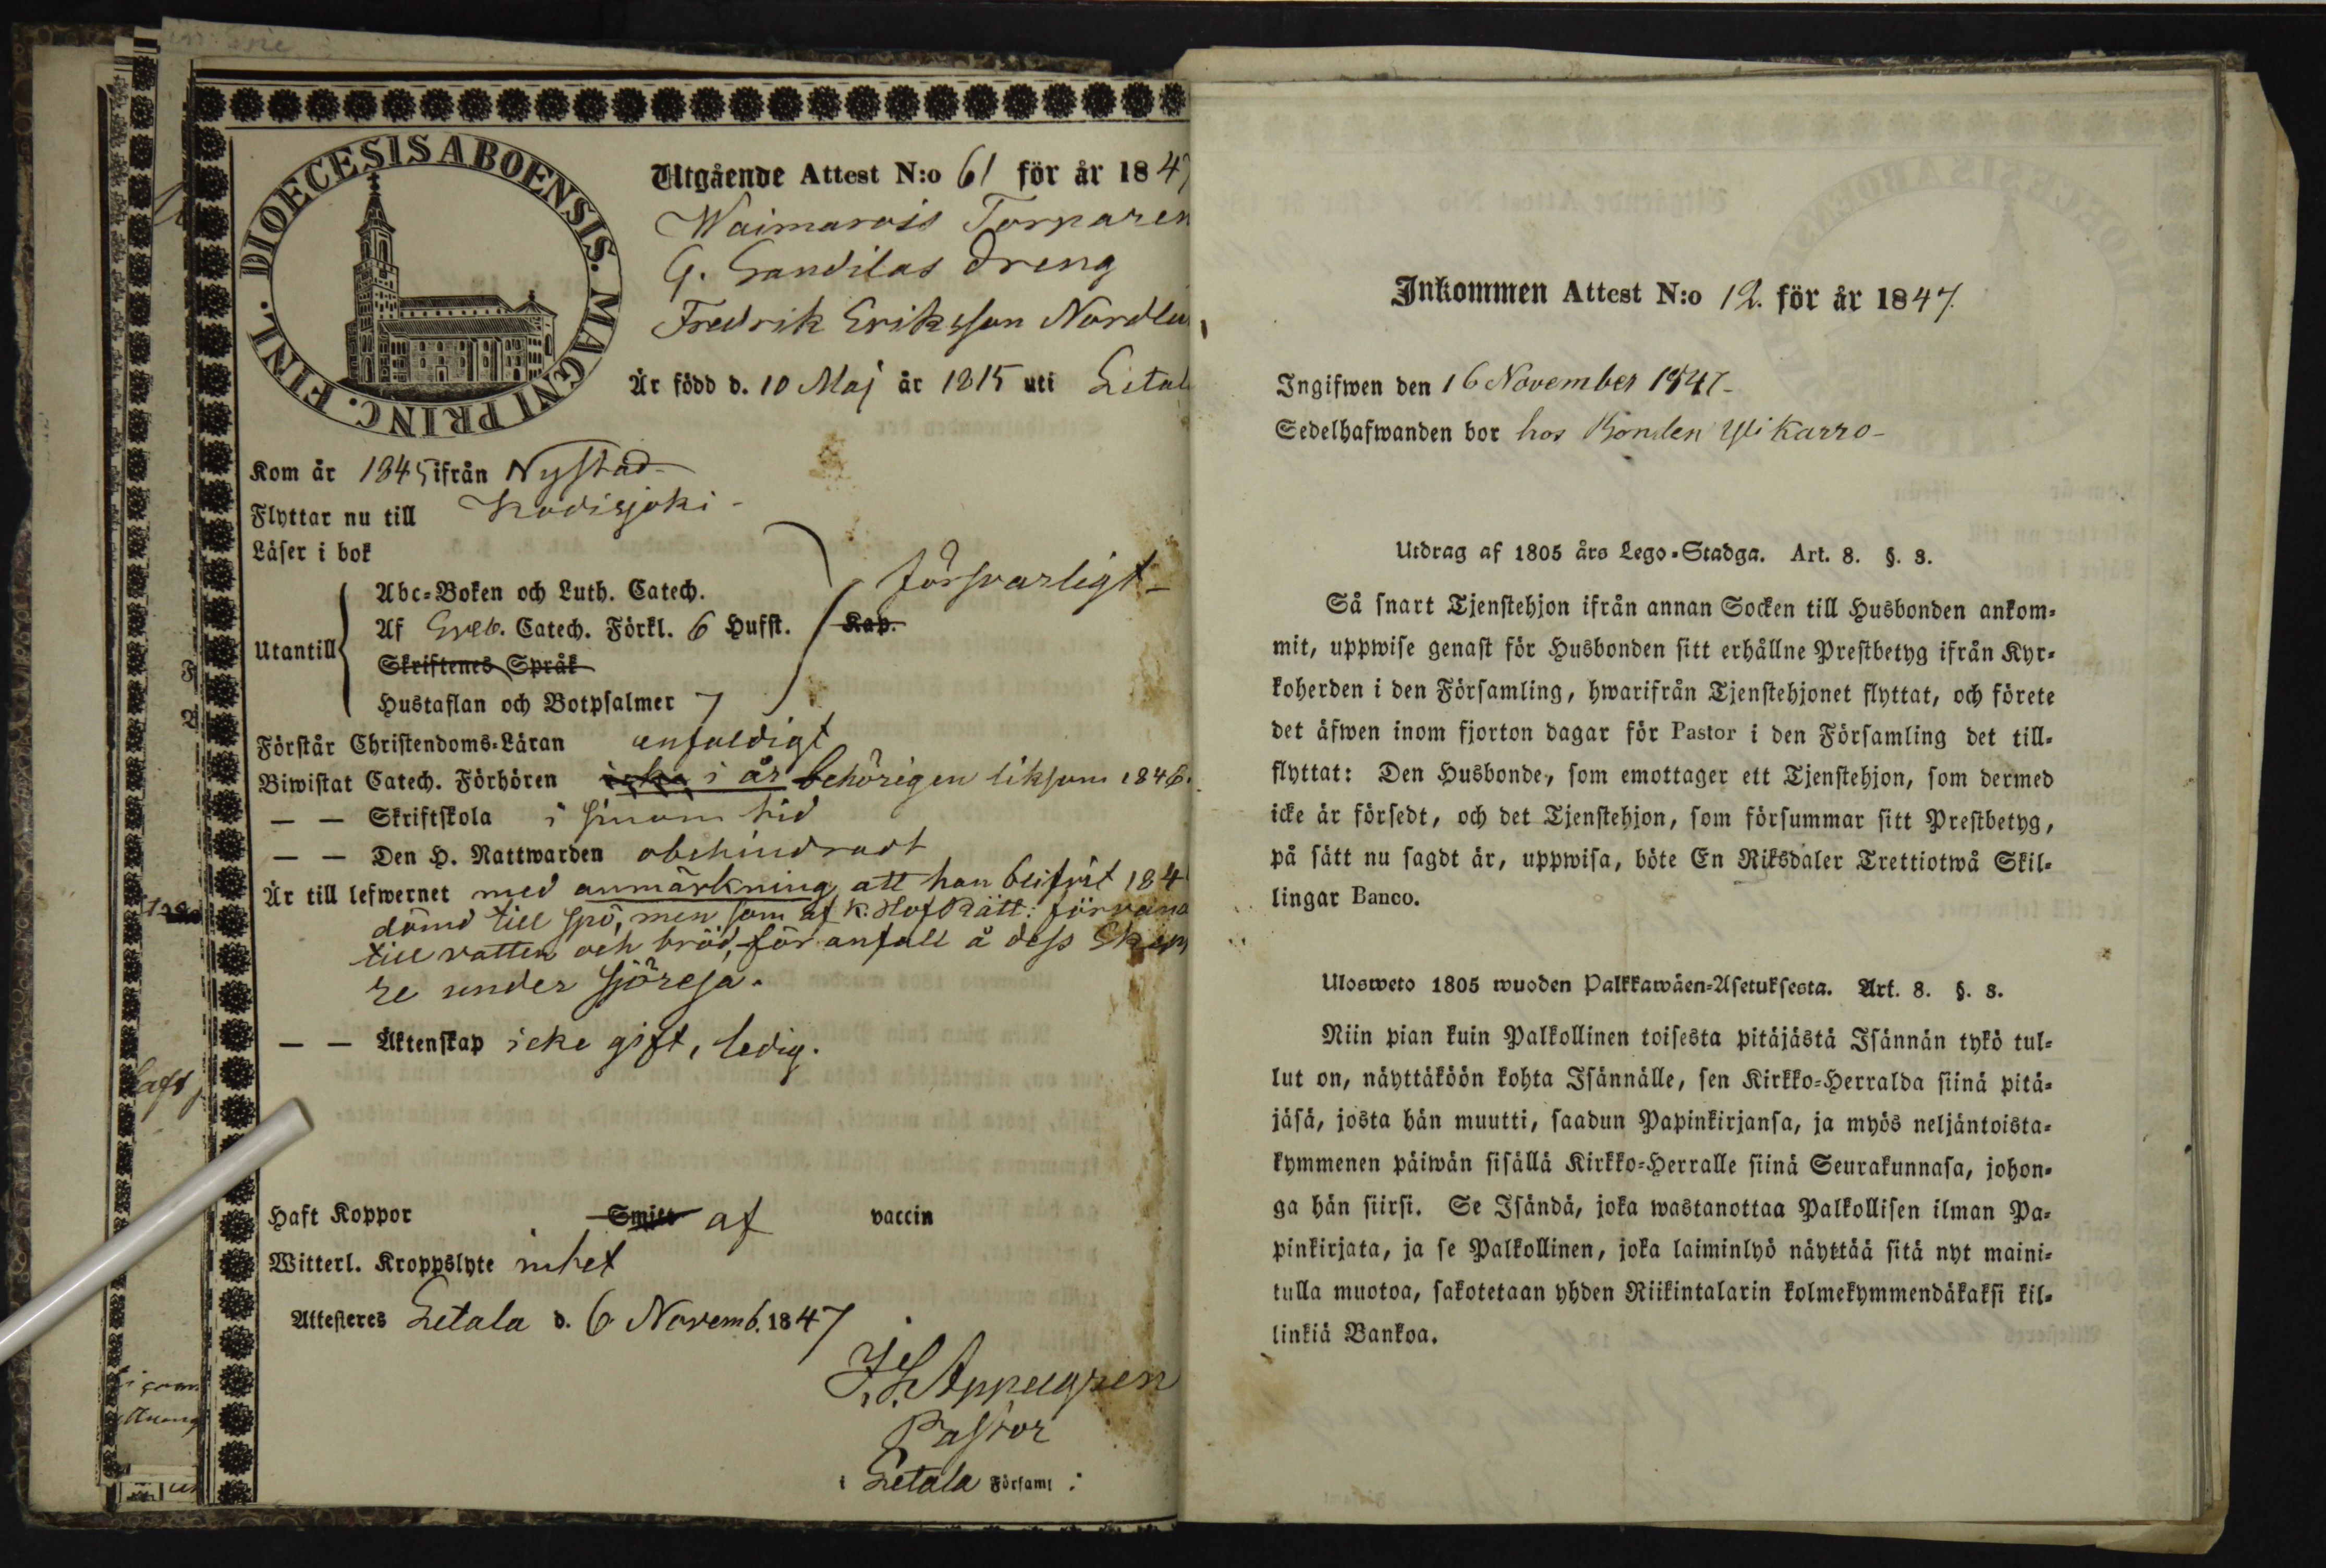 DIOECESIS ABOENSIS. MAGNI PRINC. FINL.
Utgående Attest N:o 61 för år 1847
Waimarois Torparen
G. Sandilas dreng
Fredrik Eriksson Nordlu
Är född d. 10 Maj år 1815 uti Letal
Kom år 1845 ifrån Nystad
Flyttar nu till Kodisjoki -
Läser i bok
Abc-Boken och Luth. Catech. försvarligt -
Utantill Af Sveb. Catech. Förkl. 6 Hufst. Kap.
Skriftenes Språk
Hustaflan och Botpsalmer 7
Förstår Christendoms-Läran enfaldigt
Biwistat Catech. Förhören icke i år behörigen liksom 1846.
— — Skriftskola i sinom tid
— — Den H. Nattwarden obehindradt
Är till lefwernet med anmärkning att han blifvit 184
dömd till spö, men som af K. Hof Rätt: förvand
till vatten och bröd, för anfall å dess Skepp
re under sjöresa.
— — Äktenskap icke gift, ledig.
Haft Koppor Smitt af vaccin
Witterl. Kroppslyte intet
Attesteres Letala d. 6 Novemb. 1847
Appelgren
Pastor
i Letala Församl:
Inkommen Attest N:o 12. för år 1847.
Ingifwen den 16 November 1847-
Sedelhafwanden bor hos Bonden Yli Karro-
Utdrag af 1805 års Lego-Stadga. Art. 8. §. 3.
Så snart Tjenstehjon ifrån annan Socken till Husbonden ankom-
mit, uppwise genast för Husbonden sitt erhållne Prestbetyg ifrån Kyr-
koherden i den Församling, hwarifrån Tjenstehjonet flyttat, och förete
det äfwen inom fjorton dagar för Pastor i den Församling det till-
flyttat: Den Husbonde, som emottager ett Tjenstehjon, som dermed
icke är försedt, och det Tjenstehjon, som försummar sitt Prestbetyg,
på sätt nu sagdt är, uppwisa, böte En Riksdaler Trettiotwå Skil-
lingar Banco.
Ulosweto 1805 wuoden Palkkawäen-Asetuksesta. Art. 8. §. 3.
Niin pian kuin Palkollinen toisesta pitäjästä Isännän tykö tul-
lut on, näyttäköön kohta Isännälle, sen Kirkko-Herralda siinä pitä-
jäsä, josta hän muutti, saadun Papinkirjansa, ja myös neljäntoista-
kymmenen päiwän sisällä Kirkko-Herralle siinä Seurakunnasa, johon-
ga hän siirsi. Se Isändä, joka wastanottaa Palkollisen ilman Pa-
pinkirjata, ja se Palkollinen, joka laiminlyö näyttää sitä nyt maini-
tulla muotoa, sakotetaan yhden Riikintalarin kolmekymmendäkaksi kil-
linkiä Bankoa.